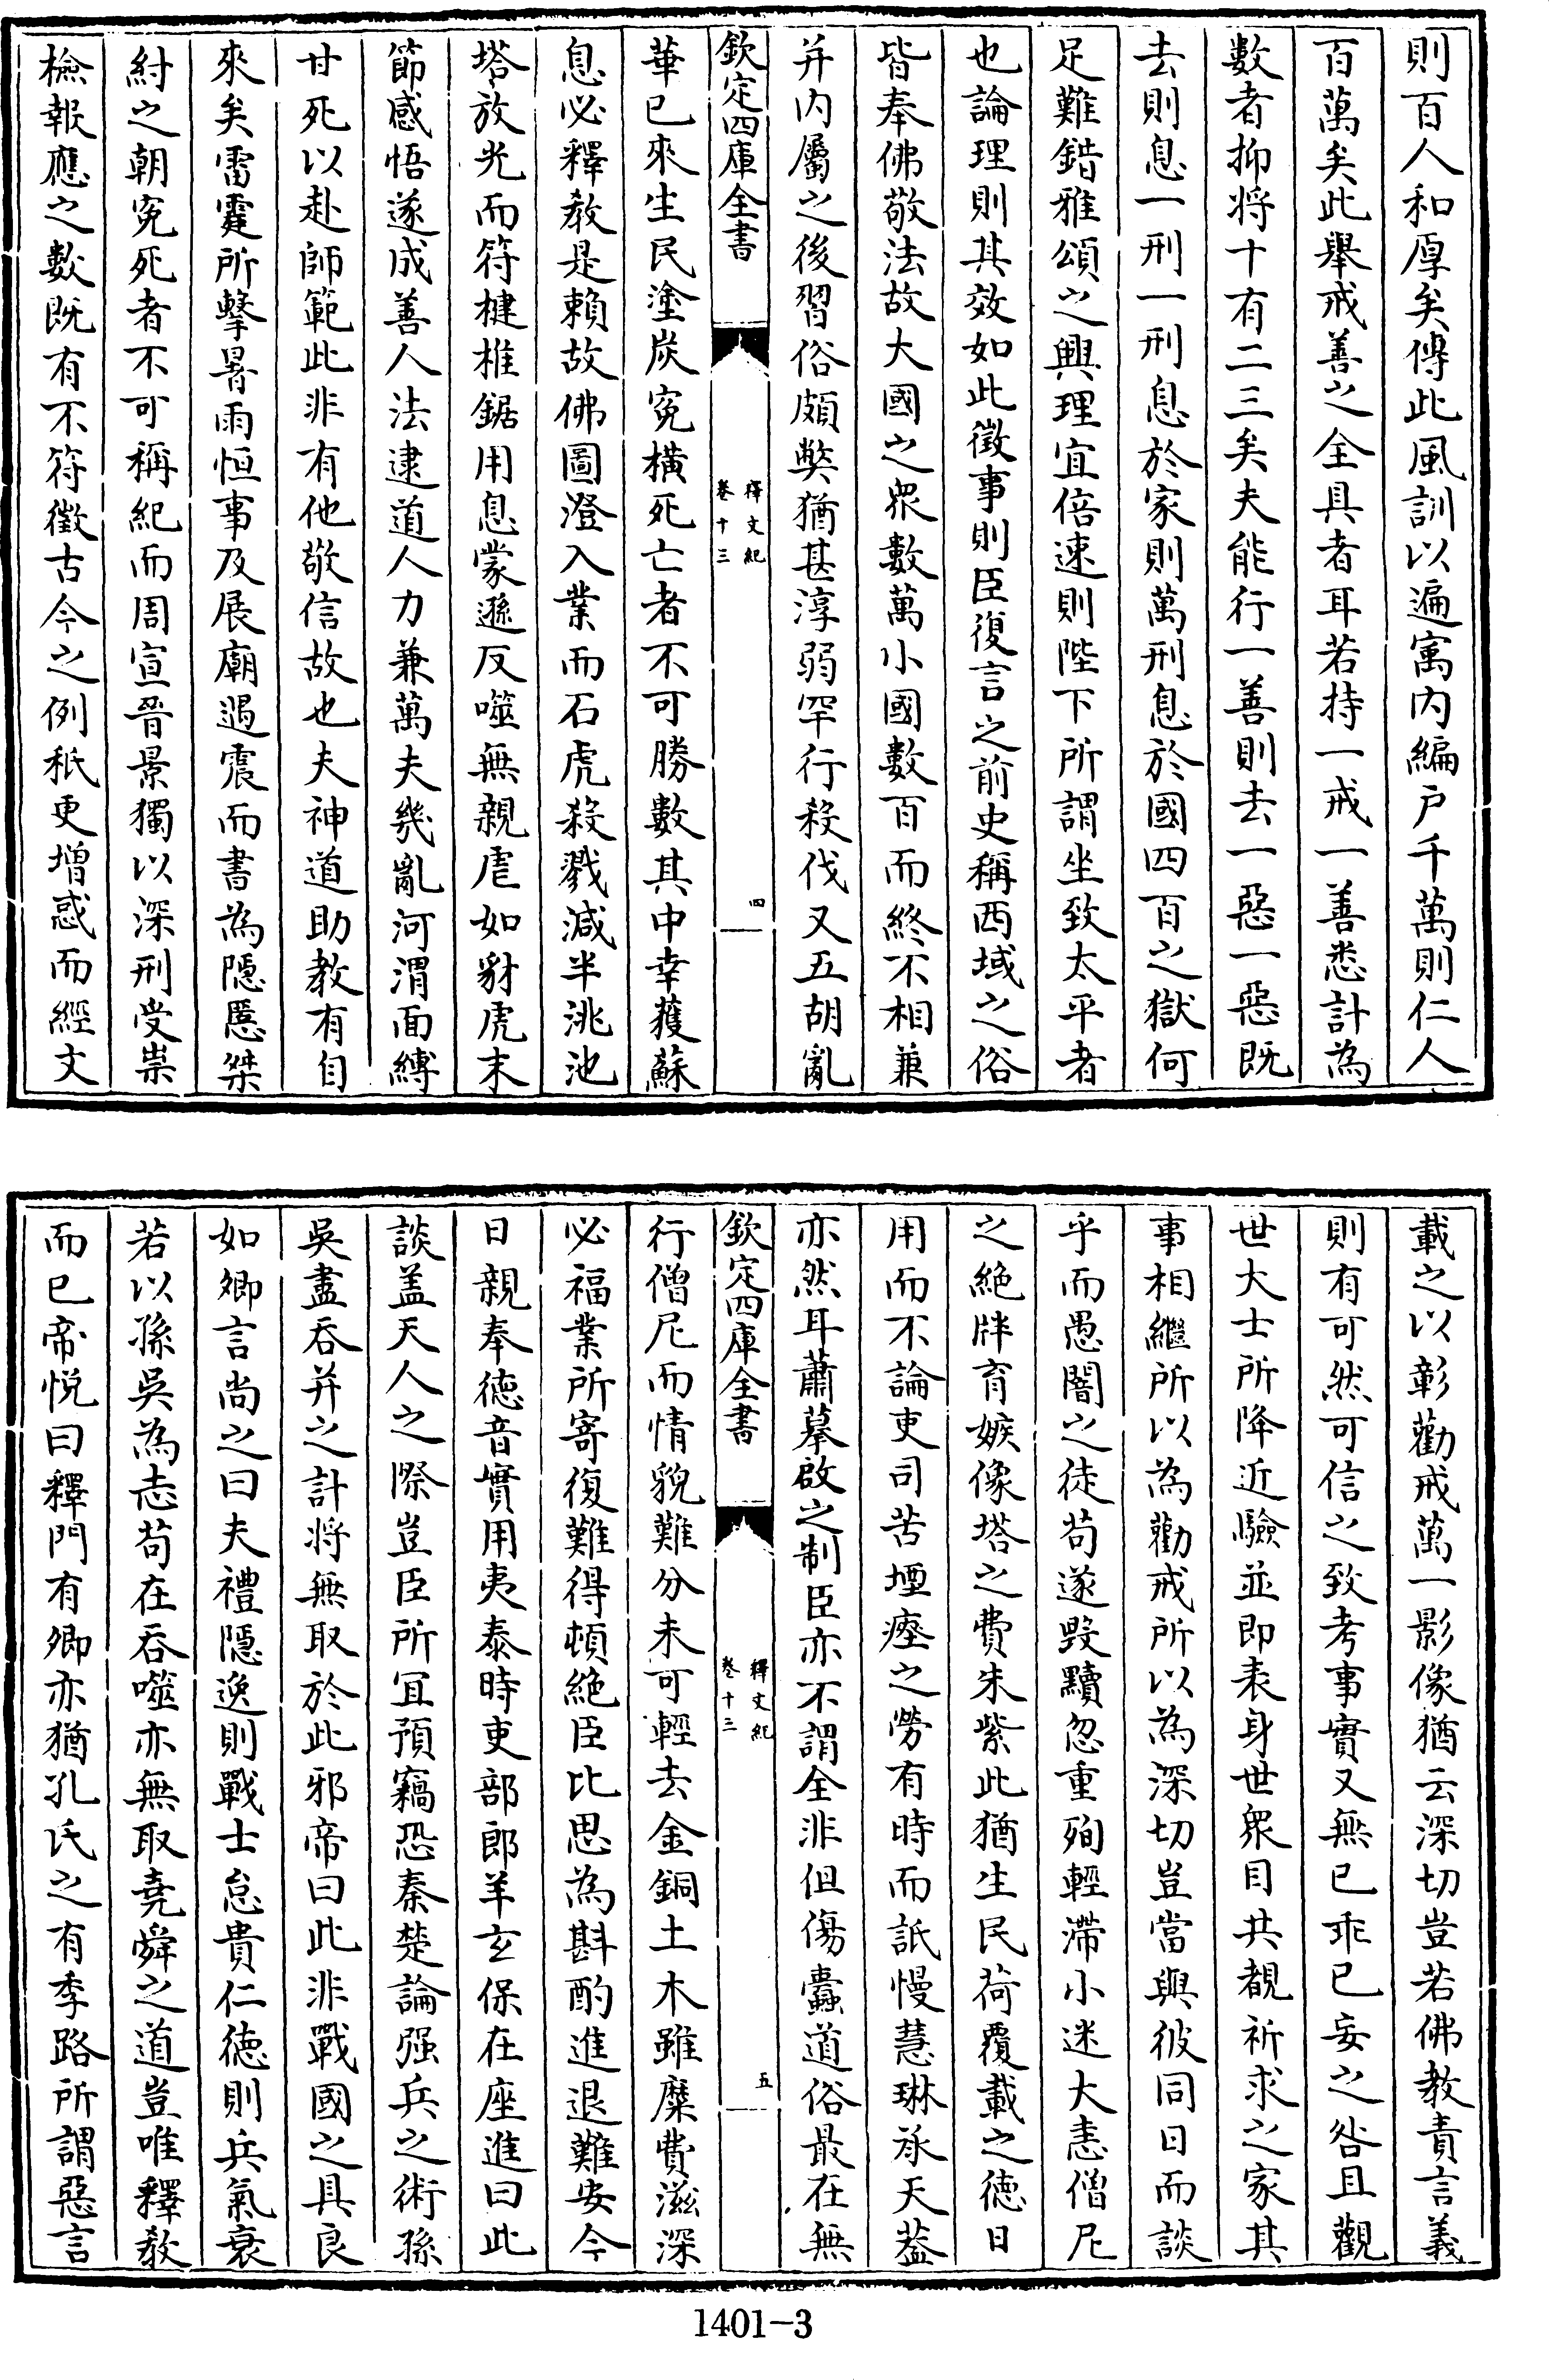 則百人和厚矣傳此風訓以遍寓内編户千萬則仁人
百萬矣此舉戒善之全具者耳若持一戒一善悉計為
數者抑将十有二三矣夫能行一善則去一惡一惡既
去則息一刑一刑息於家則萬刑息於國四百之獄何
足難錯雅頌之興理宜倍速則陛下所謂坐致太平者
也論理則其效如此徵事則臣復言之前史稱西域之俗
皆奉佛敬法故大國之衆數萬小國數百而終不相兼
并内屬之後習俗頗弊猶甚淳弱罕行殺伐又五胡亂
欽定四庫全書
釋文紀
卷十三
四
華已來生民塗炭寃横死亡者不可勝數其中幸獲蘇
息必釋教是賴故佛圖澄入業而石虎殺戮減半洮池
塔放光而符揵椎鋸用息蒙遜反噬無親虐如豺虎末
節感悟遂成善人法逮道人力兼萬夫幾亂河渭面縛
甘死以赴師範此非有他敬信故也夫神道助教有自
來矣雷霆所擊暑雨恒事及展廟遇震而書為隱慝桀
紂之朝寃死者不可稱紀而周宣晉景獨以深刑受祟
檢報應之數既有不符徵古今之例秖更增惑而經文
載之以彰勸戒萬一影像猶云深切豈若佛教責言義
則有可然可信之致考事實又無已乖已妄之咎且觀
世大士所降近驗並即表身世衆目共覩祈求之家其
事相繼所以為勸戒所以為深切豈當與彼同日而談
乎而愚闇之徒苟遂毁黷忽重殉輕滯小迷大恚僧尼
之絶牉育嫉像塔之費朱紫此猶生民荷覆載之德日
用而不論吏司苦堙瘞之勞有時而詆慢慧琳承天蓋
亦然耳蕭摹啟之制臣亦不謂全非但傷蠹道俗最在無
欽定四庫全書
釋文紀
卷十三
五
行僧尼而情貌難分未可輕去金銅土木雖糜費滋深
必福業所寄復難得頓絶臣比思為斟酌進退難安今
日親奉德音實用夷泰時吏部郎羊玄保在座進曰此
談盖天人之際豈臣所宜預竊恐秦楚論强兵之術孫
吳盡吞并之計将無取於此邪帝曰此非戰國之具良
如卿言尚之曰夫禮隱逸則戰士怠貴仁德則兵氣衰
若以孫吳為志苟在吞噬亦無取堯舜之道豈唯釋教
而已帝悦曰釋門有卿亦猶孔氏之有季路所謂惡言
1401-3